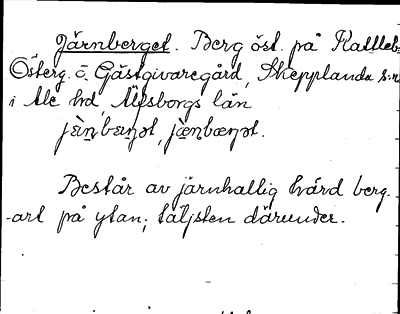 Järnberget. Berg öst. på Kattleb
Österg. o. Gästgivaregård, Skepplanda s:n
i Ale hd, Älvsborgs län
jæ̀ṇbæṇət, jæ̀ṇbæṇət.
Består av järnhaltig hård berg-
-art på ytan; täljsten därunder.